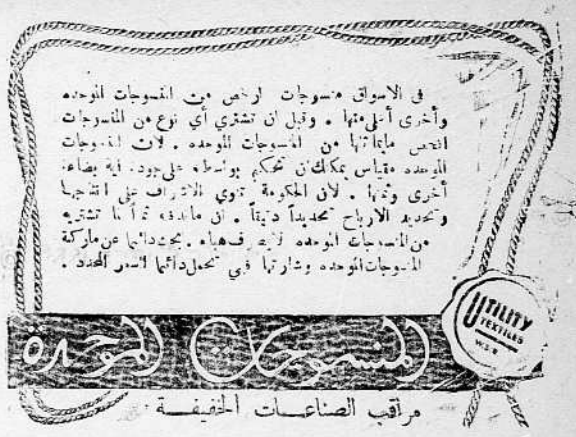 في الاسواق منسوجات ارخص من المنسوجات الموحده
وأخرى أغلى منها . وقبل ان تشتري أي نوع من المنسوجات
افحص مايماثلها من المنسوجات الموحده . لان المنسوجات
الموحده مقياس يمكنك ان تحكم بواسطته على جودة اية بضاعة
أخرى وثمنها . لأن الحكومة تتولى الاشراف على انتاجها
وتحديد الارباح تحديداً دقيقاً . ان ماتدفعه ثمناً لما تشتريه
من المنسوجات الموحده لايصرف هباء . ابحث دائما عن ماركة
المنسوجات الموحده وشارتها فهي تحمل دائما السعر المحدد .
UTILITY
TEXTILES
المنسوجات الموحدة
مراقب الصناعات الخفيفة